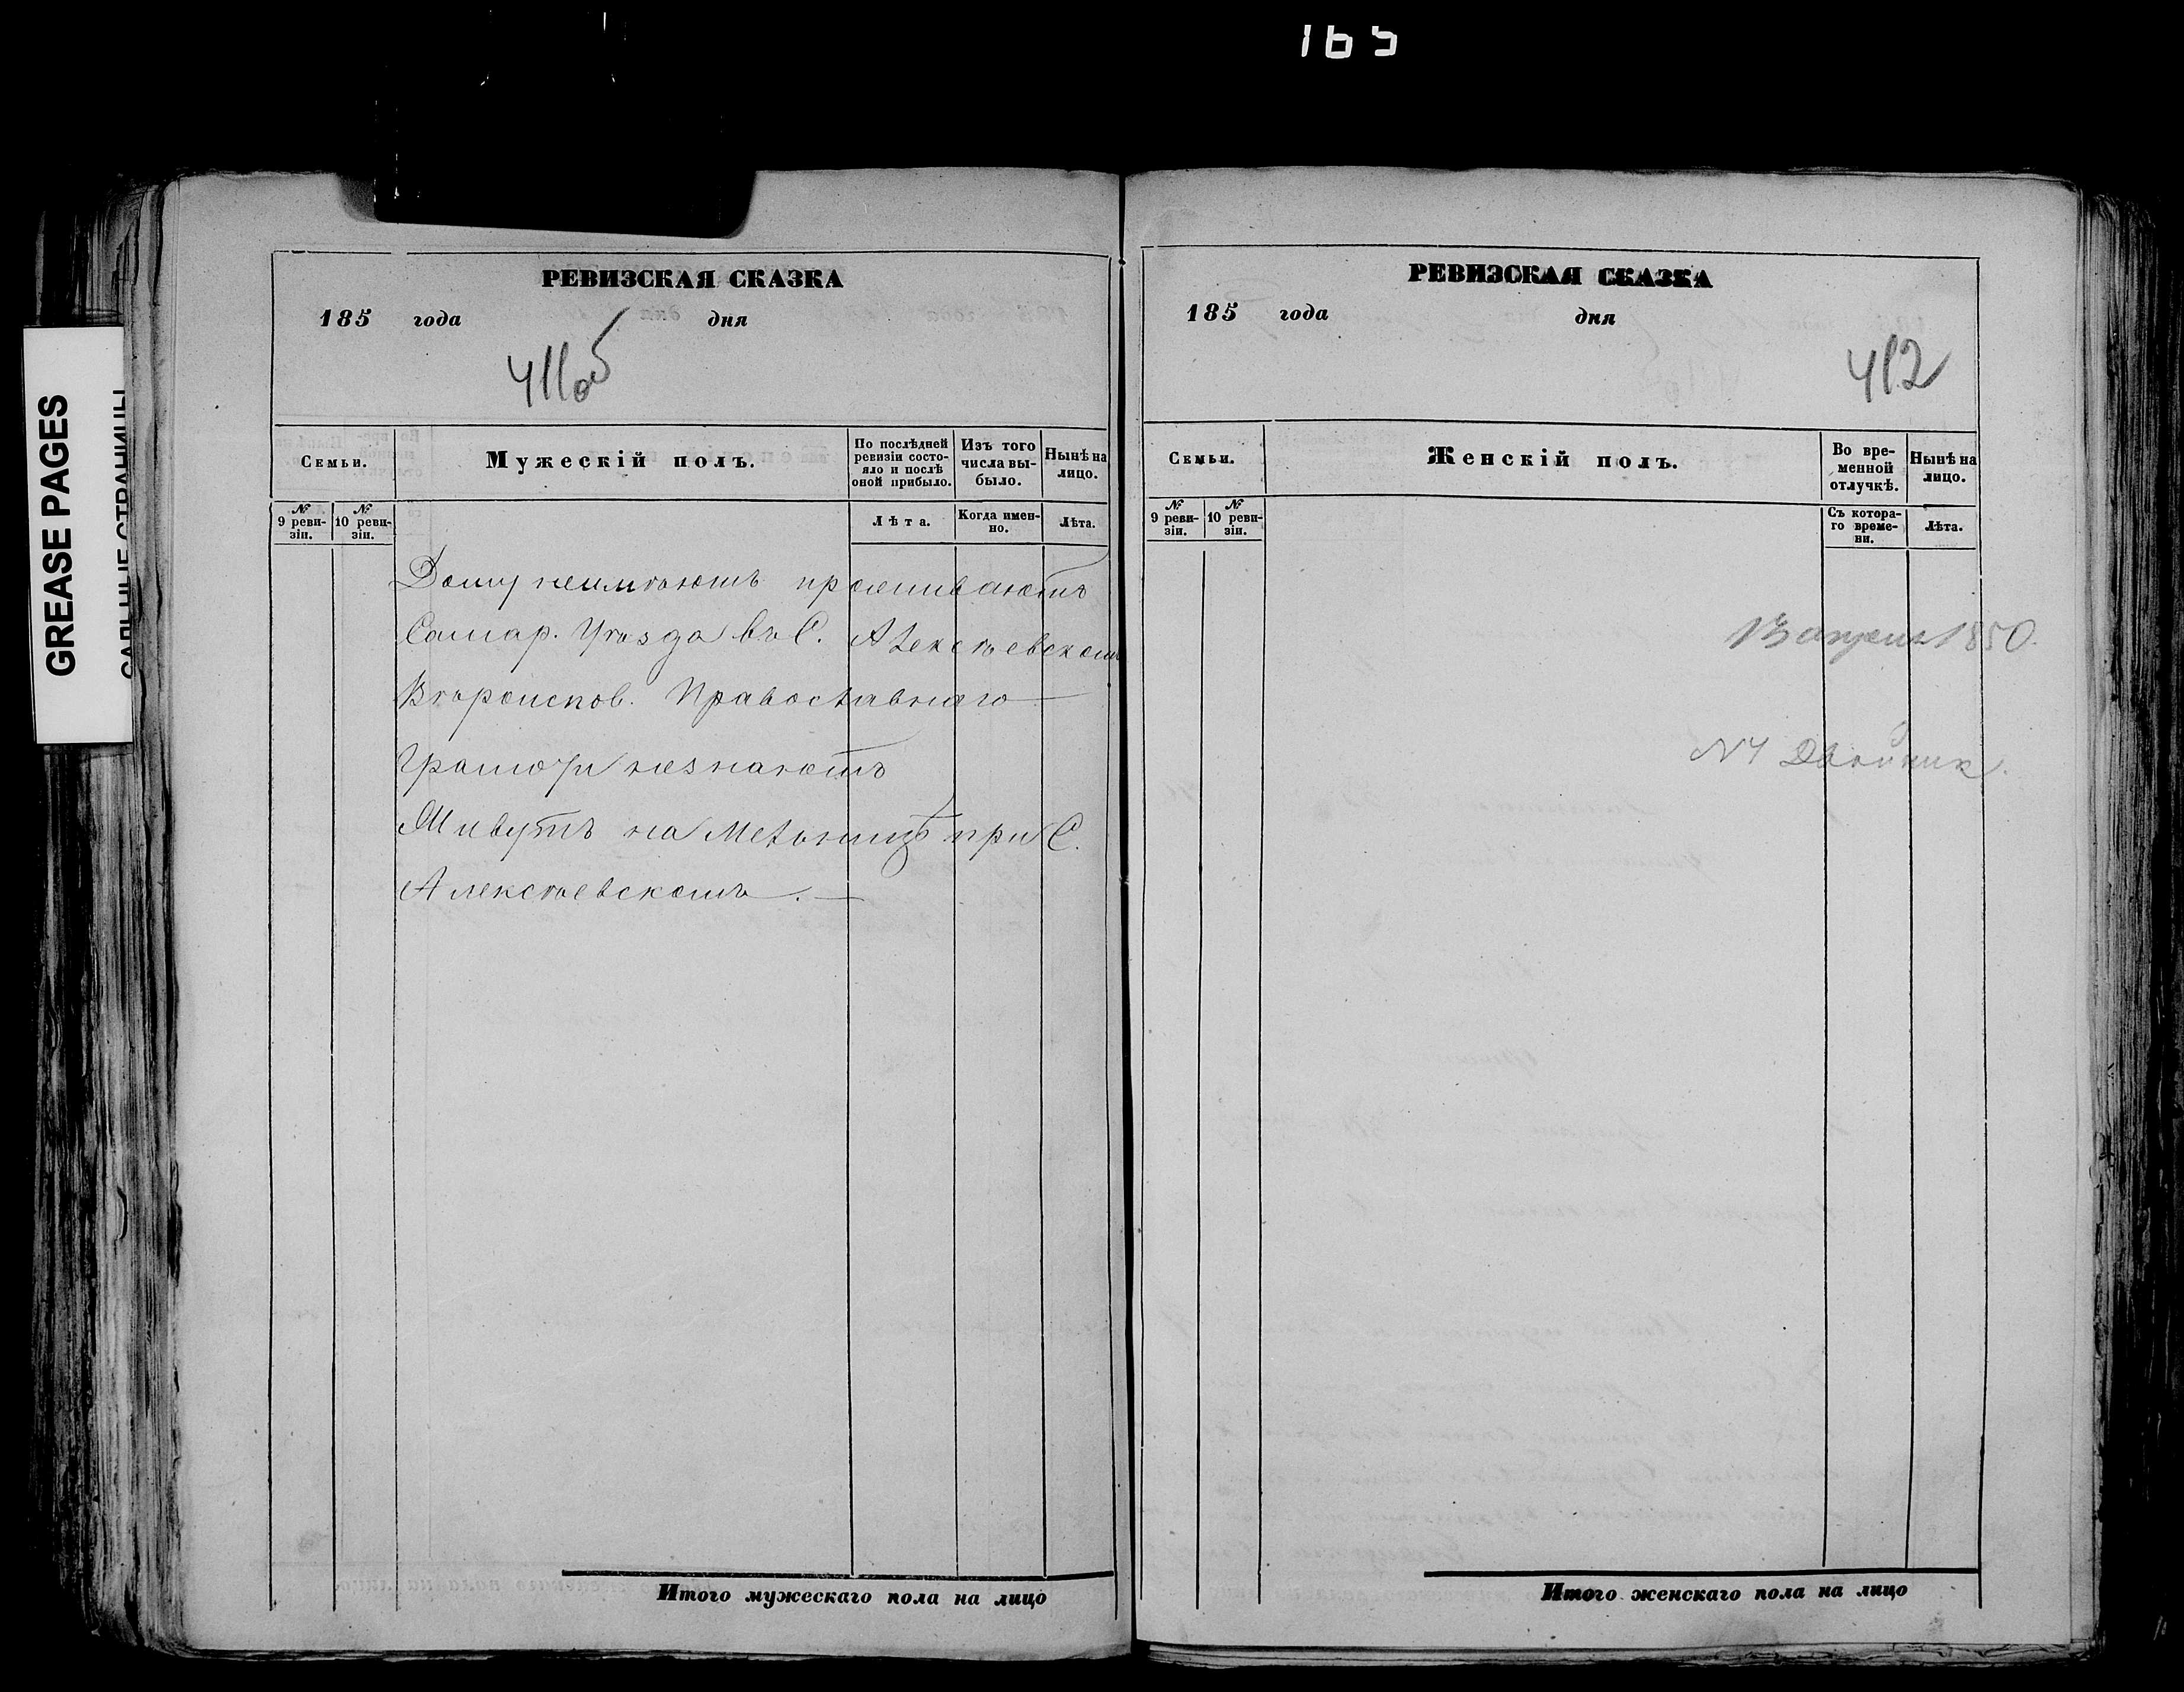 165
GREASE PAGES
РЕВИЗСКАЯ СКАЗКА
185 года дня
411об
Семьи.
Мужескій полъ.
По послѣдней ревизіи состояло и послѣ оной прибыло.
Изъ того числа выбыло.
Нынѣ на лицо.
№ 9 ревизіи.
№ 10 ревизіи.
Лѣта.
Когда именно.
Лѣта.
Дому неимѣютъ проживаютъ
Самар. Уѣзда въ С. Алексѣевскомъ
Вѣроиспов. Православнаго
Грамоты незнаютъ
Живутъ на Мельницѣ при С.
Алексѣевскомъ. —
Итого мужескаго пола на лицо
РЕВИЗСКАЯ СКАЗКА
185 года дня
412
Семьи.
Женскій полъ.
Во временной отлучкѣ.
Нынѣ на лицо.
№ 9 ревизіи.
№ 10 ревизіи.
Съ котораго времени.
Лѣта.
1850.
Двойник.
Итого женскаго пола на лицо